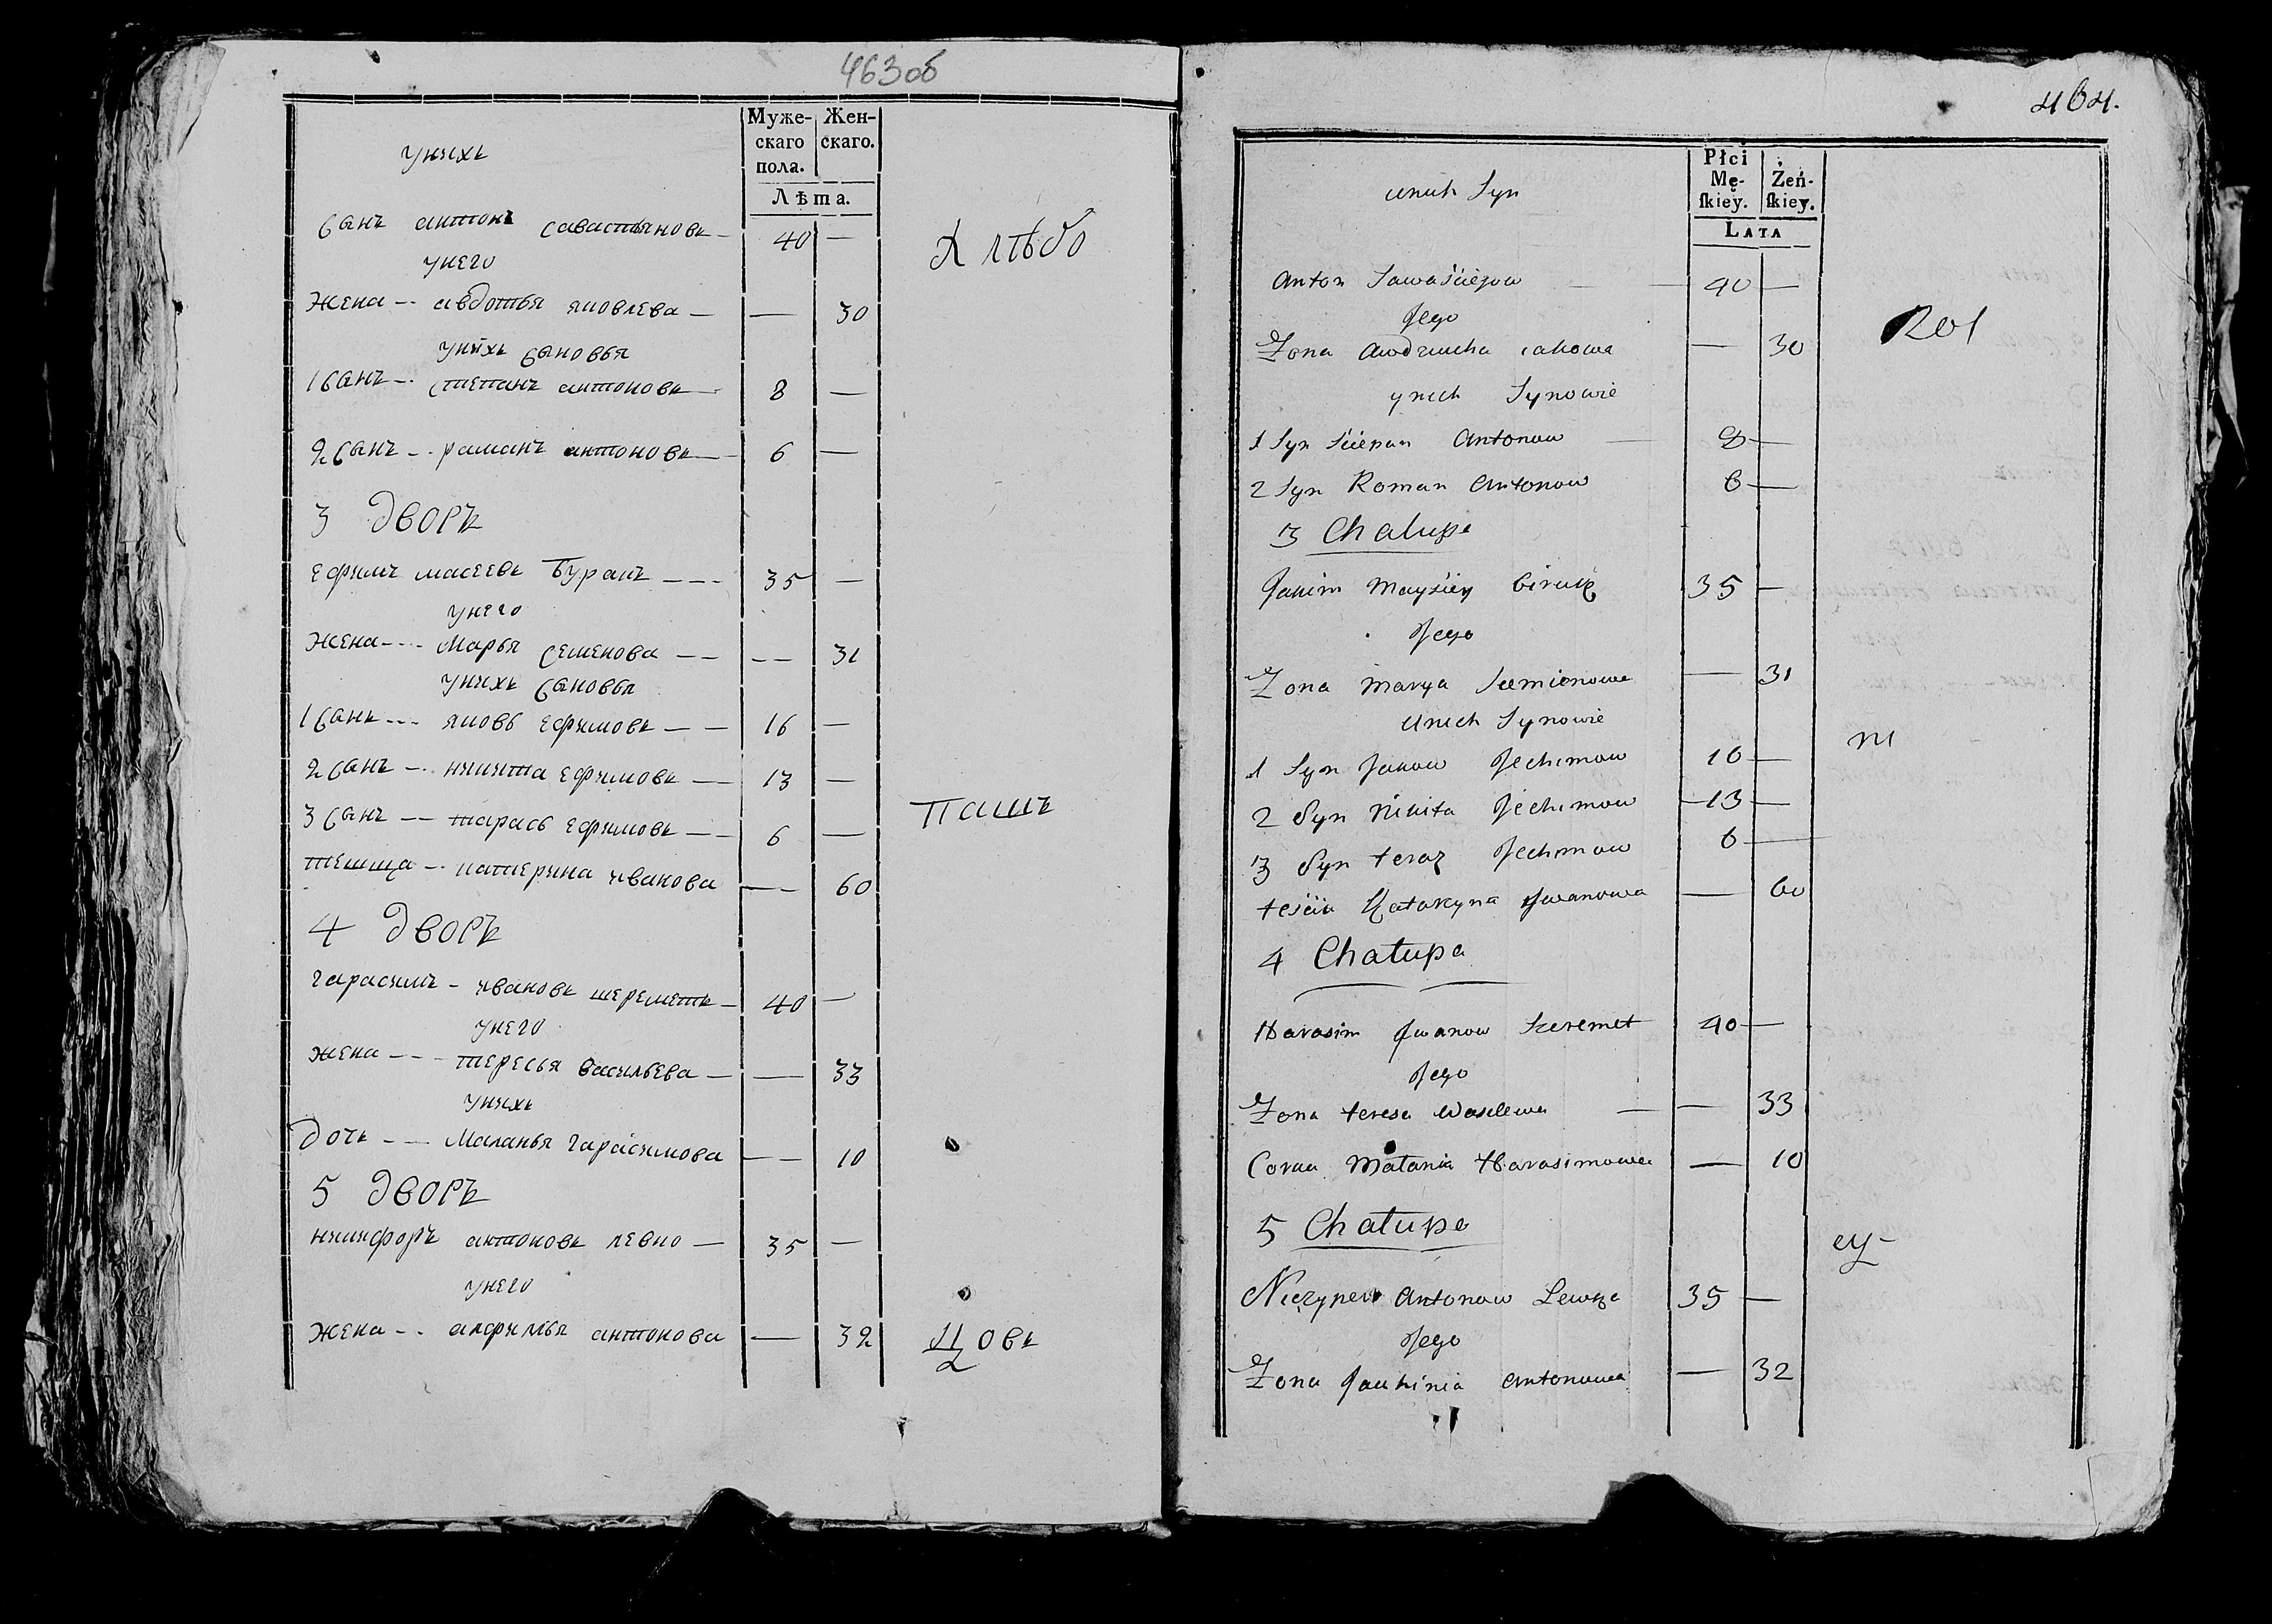 463об
Муже-
скаго
пола.
Жен-
скаго.
Лѣта.
унихъ
сынъ антонъ савастьяновъ — 40 —
унего
жена -- авдотья яковлева — — 30
унихъ сыновья
1 сынъ -- степанъ антоновъ — 8 —
2 сынъ -- романъ антоновъ — 6 —
3 дворъ
ефимъ масеевъ --- 35 —
унего
жена --- марья семенова -- -- 31
унихъ сыновья
1 сынъ --- яковъ ефимовъ -- 16 —
2 сынъ -- никита ефимовъ — 13 —
3 сынъ -- тарасъ ефимовъ -- 6 —
тешща -- катерина иванова — 60
4 дворъ
гарасимъ - ивановъ шереметъ — 40 —
унего
жена --- тересья васильева — — 33
унихъ
дочь --- маланья гарасимова -- 10
5 дворъ
никифоръ антоновъ левко — 35 —
унего
жена -- антонова — 32
хлѣбо
пашъ
цовъ
464.
Płci
Mę-
ſkiey.
Żeń-
ſkiey.
Lata
unich Syn
Anton — 40 —
Jego
Zona — 30
ynich Synowie
1 Syn Sciepan Antonow — 8 —
2 Syn Roman Antonow 6 —
3 Chalupa
35 —
Jego
Zona Marya Semionowa — 31
Unich Synowie
1 Syn Jakow Jechimow 16 —
2 Syn Nikita Jechimow — 13 —
3 Syn teraz Jechimow 6 —
Katarzyna Jwanowa — 60
4 Chalupa
Harasim Jwanow Szeremet 40 —
Jego
Zona teresa Wasilewa — — 33
Corka Malania Harasimowa — 10
5 Chalupa
Antonow Lewko 35 —
Jego
Zona Antonowa — 32
Rol
ni
cy-